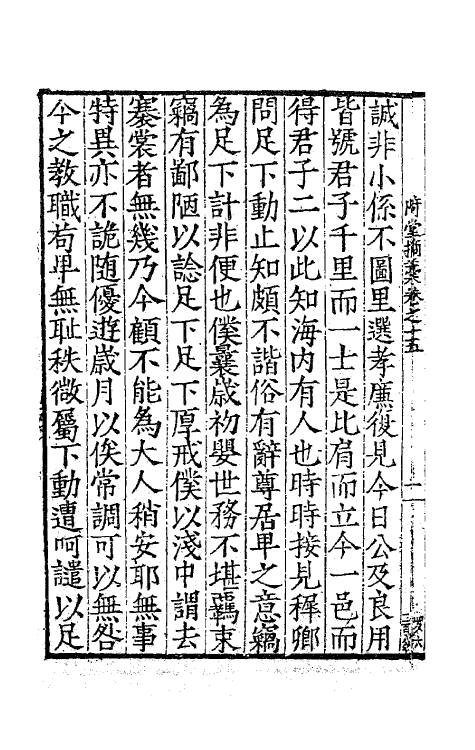 誠非小係不圖里選孝廉復見今日公及良用
皆號君子千里而一士是比肩而立今一邑而
得君子二以此知海内有人也時時接見稺卿
問足下動止知頗不諧俗有辭尊居卑之意竊
為足下計非便也僕曩歲初嬰世務不堪羈束
竊有鄙陋以諗足下足下厚戒僕以淺中謂去
褰裳者無幾乃今顧不能為大人稍安耶無事
特異亦不詭随優遊歲月以俟常調可以無咎
今之教職茍卑無耻秩微屬下動遭呵譴以足
卷之十五